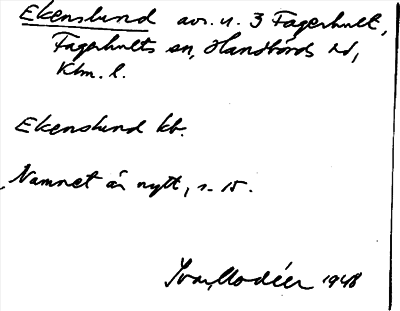 Ekenslund avs. u. 3 Fagerhult,
Fagerhults sn, Handbörds hd,
Klm. l.
Ekenslund kb.
Namnet är nytt, s. 15.
Ivar Modéer 1948